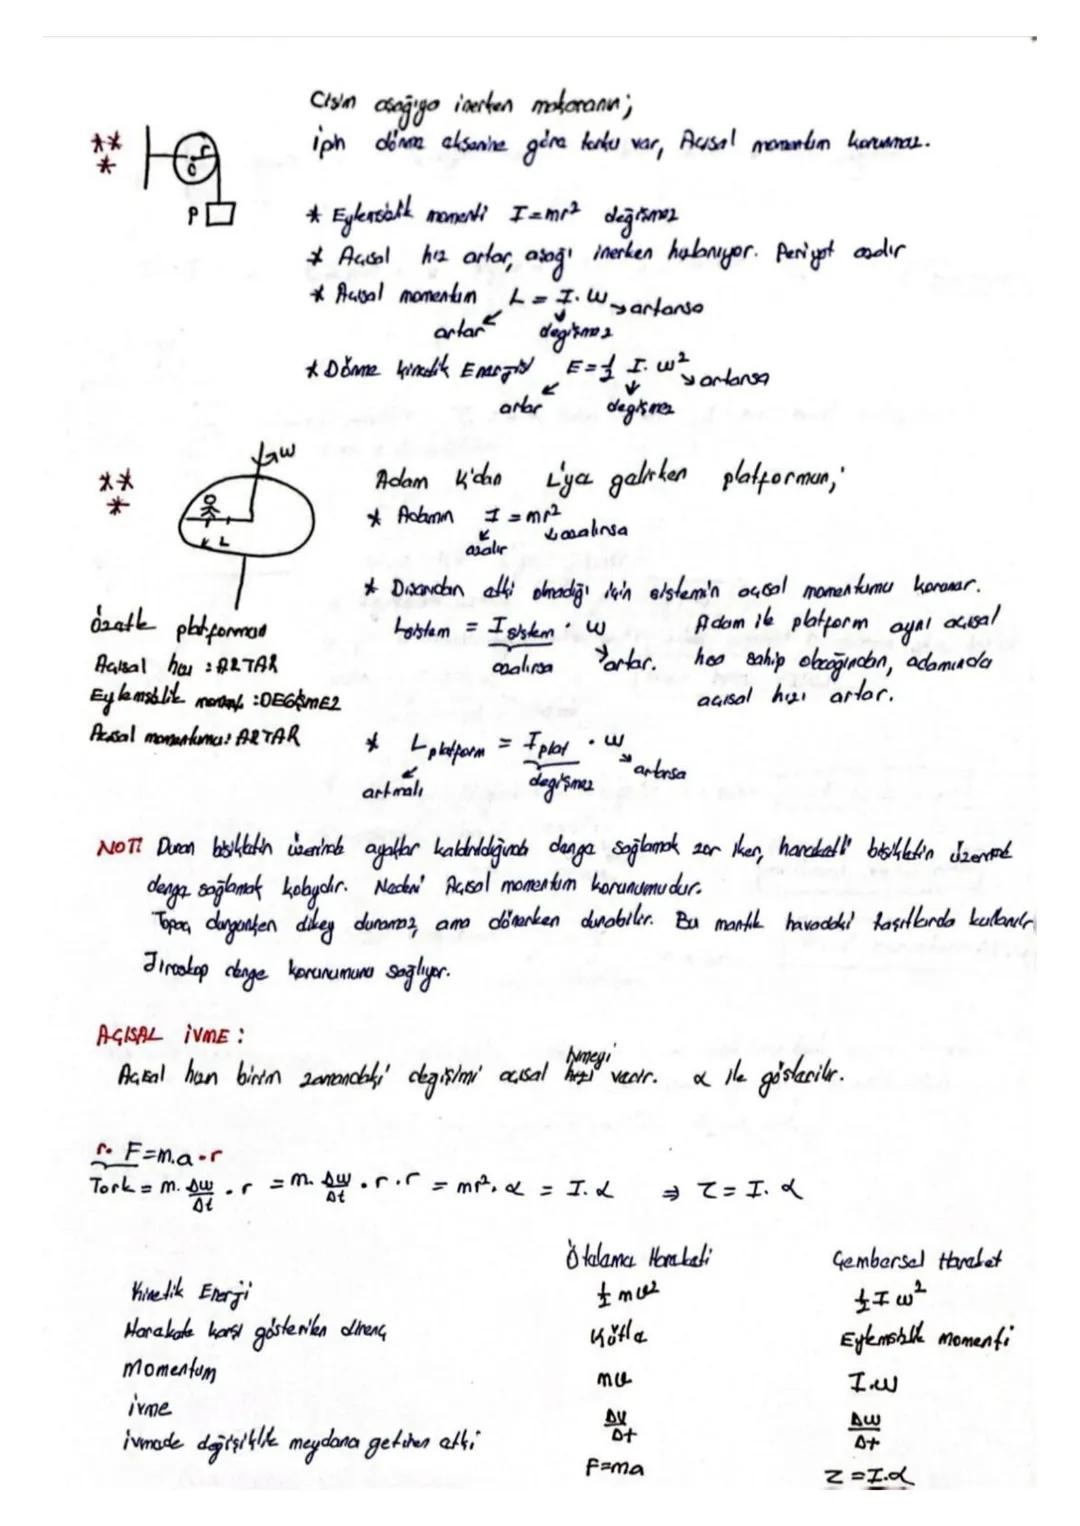 Cisim aşağıya inerken makaranın;
ipin dönme eksenine göre torku var, Açısal momentum korunmaz.
**
*
r
O
P
* Eylemsizlik momenti I=mr² değişmez
* Açısal hız artar, aşağı inerken hızlanıyor. Periyot azalır
* Açısal momentum L = I. w → artarsa
artar değişmez
* Dönme kinetik Enerjisi E=½ I. w² artarsa
artar değişmez
w
**
*
K L
Adam K'dan L'ya gelirken platformun;
* Adamın I = mr²
azalır azalırsa
* Dışarıdan etki olmadığı için sistem'in açısal momentumu korunur.
Lsistem = Isistem . w
azalırsa artar.
Adam ile platform aynı açısal
hıza sahip olacağından, adamında
açısal hızı artar.
özetle platformun
Açısal hızı : ARTAR
Eylemsizlik momenti : DEĞİŞMEZ
Açısal momentumu: ARTAR
* Lplatform = Iplat . w
artmalı değişmez artarsa
NOT! Duran bisikletin üzerinde ayaklar kaldırıldığında denge sağlamak zor iken, hareketli bisikletin üzerinde
denge sağlamak kolaydır. Nedeni Açısal momentum korunumudur.
Topaç durgunken dikey duramaz, ama dönerken durabilir. Bu mantık havadaki taşıtlarda kullanılır
Jiroskop denge korunumunu sağlıyor.
AÇISAL İVME :
Açısal hızın birim zamandaki değişimi açısal ivmeyi verir. α ile gösterilir.
r. F=m.a.r
Tork = m. Δw/Δt . r = m. Δw/Δt . r . r = mr². α = I. α ⇒ τ = I. α
Öteleme Hareketi Çembersel Hareket
Kinetik Enerji ½ mv² ½ I w²
Harekete karşı gösterilen direnç Kütle Eylemsizlik momenti
Momentum mv I.w
ivme Δv/Δt Δw/Δt
ivmede değişiklik meydana getiren etki F=ma τ = I.α